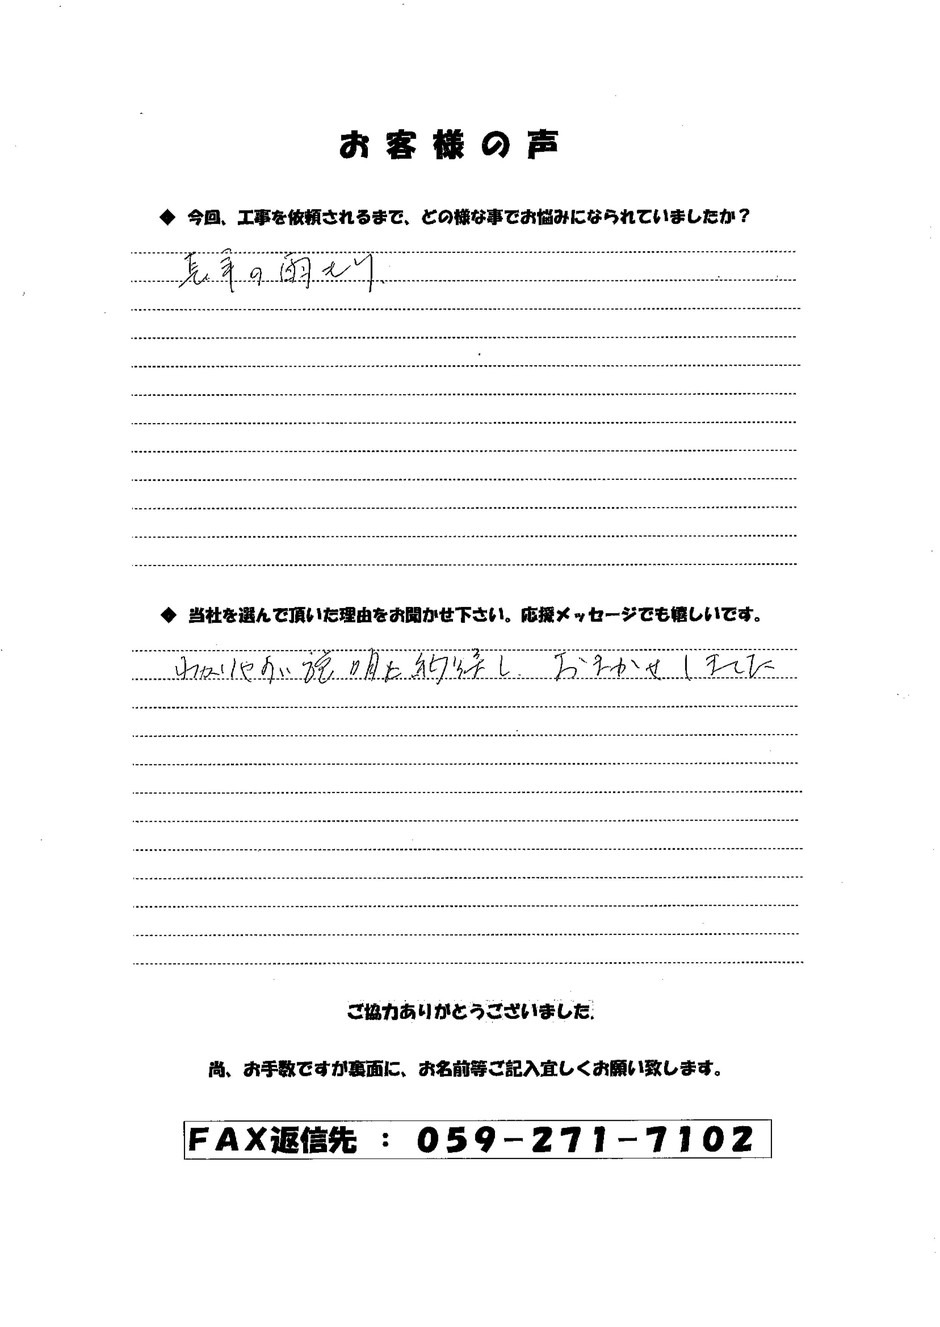 お客様の声
◆ 今回、工事を依頼されるまで、どの様な事でお悩みになられていましたか？
の雨もり
◆ 当社を選んで頂いた理由をお聞かせ下さい。応援メッセージでも嬉しいです。
説明に納得し おまかせしました
ご協力ありがとうございました。
尚、お手数ですが裏面に、お名前等ご記入宜しくお願い致します。
ＦＡＸ返信先 ： 059-271-7102